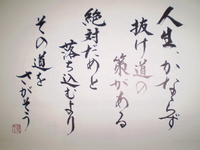 人生かならず
抜け道の
策がある
絶対だめと
落ち込むより
その道を
さがそう